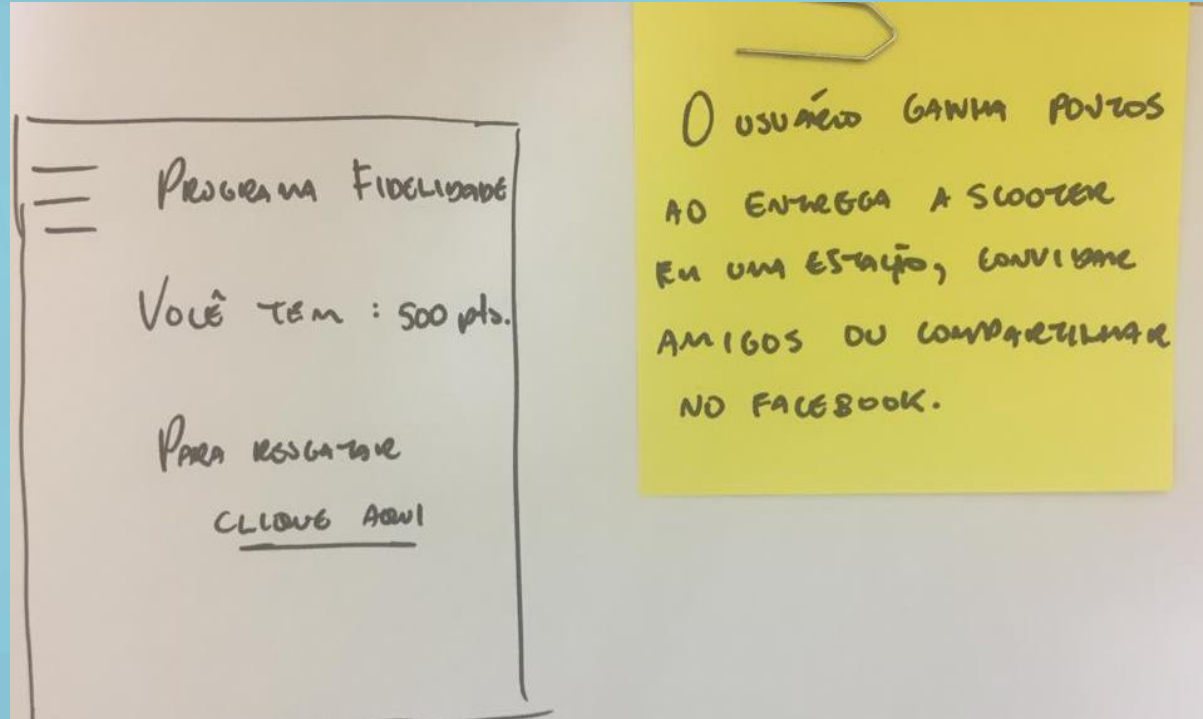 PROGRAMA FIDELIDADE
VOCÊ TEM : 500 pts.
PARA RESGATAR
CLIQUE AQUI
O USUÁRIO GANHA PONTOS
AO ENTREGA A SCOOTER
EM UMA ESTAÇÃO, CONVIDAR
AMIGOS OU COMPARTILHAR
NO FACEBOOK.